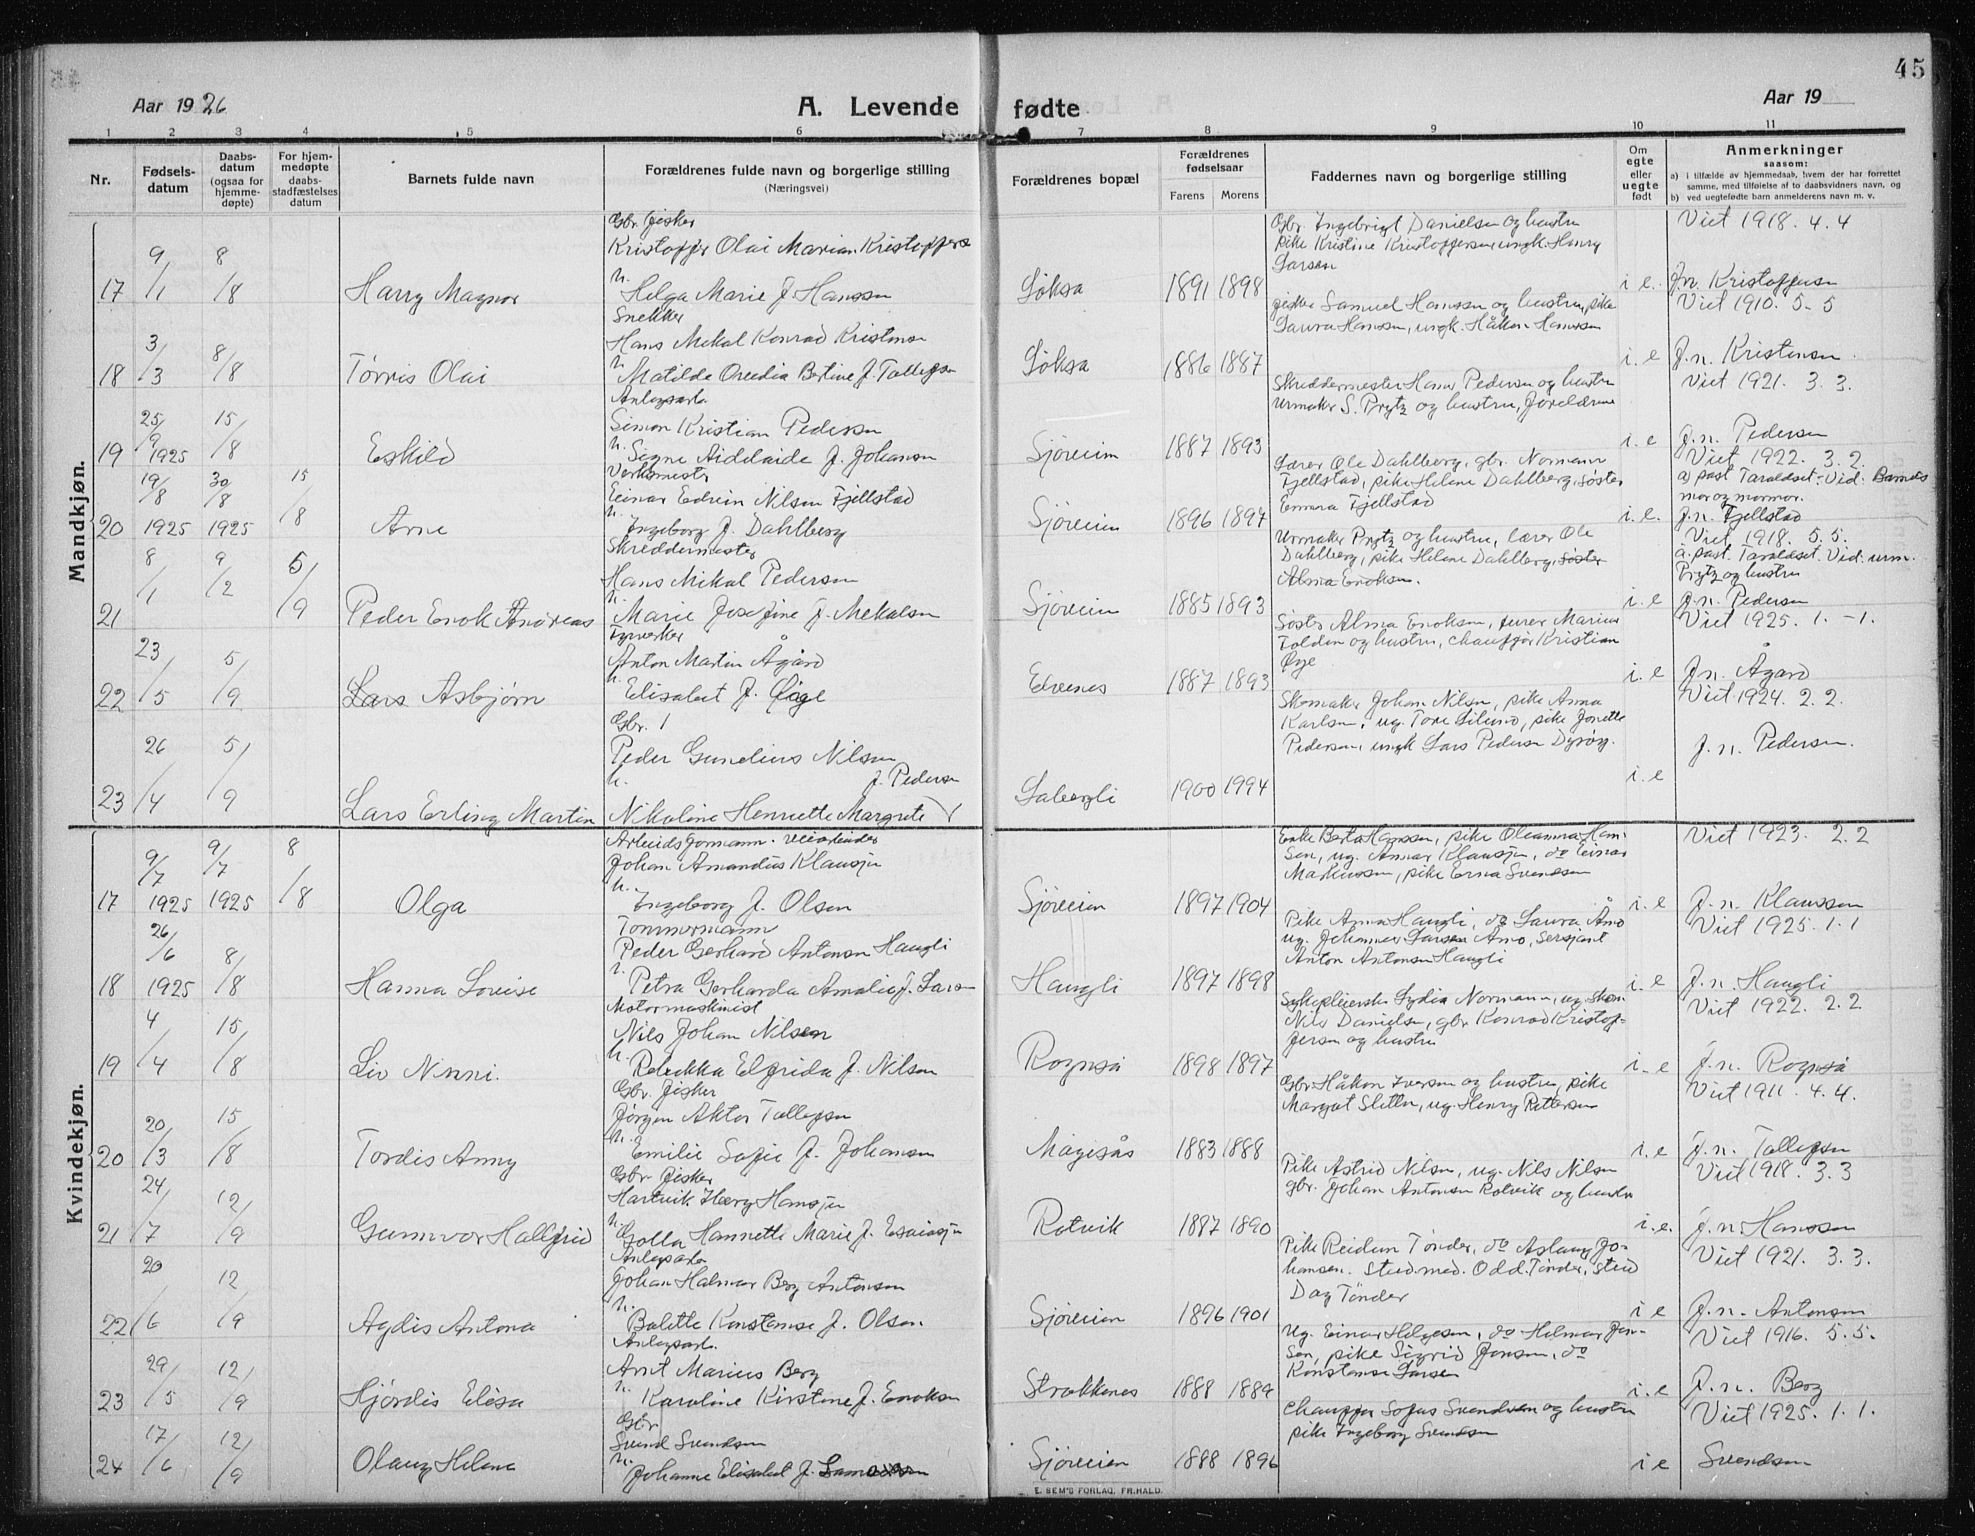 45
Aar 1926
A. Levende fødte
Aar 19
1 2 3 4 5 6 7 8 9 10 11
Nr.
Fødsels-datum
Daabs-datum (ogsaa for hjemme-døpte)
For hjem-medøpte daabs-stadfæstelses datum
Barnets fulde navn
Forældrenes fulde navn og borgerlige stilling
(Næringsvei)
Forældrenes bopæl
Forældrenes fødselsaar
Farens Morens
Faddernes navn og borgerlige stilling
Om egte eller uegte født
Anmerkninger
saasom:
a) i tilfælde av hjemmedaab, hvem der har forrettet samme, med tilføielse af to daabsvidners navn, og
b) ved uegtefødte barn anmelderens navn m. v.
Mandkjøn.
Gbr. fisker
Kristoffer Olai Marian Kristoffers
Gbr. Ingebrigt Danielsen og hustru
pike Kristine Kristoffersen, ungk. Henry
Larsen
Viet 1918. 4. 4
17 9/1 8/8 Harry Magnor
h. Helga Marie f. Hanssen
1891 1898
i e.
f.n. Kristoffersen
Snekker
Hans Mekal Konrad Kristensen
fisker Samuel Hanssen og hustru, pike
Laura Hanssen, ungk. Håkon Hanssen
Viet 1910. 5-5
18 3/3 8/8 Tørris Olai
h. Matilde Oredia Bertine f. Tollefsen
1886 1887
i. e
f.n. Kristensen
Anlegsarb.
Simon Kristian Pedersen
Skreddermester Hans Pedersen og hustru
Urmaker S. Prytz og hustru, foreldrene
Viet 1921. 3. 3.
19 25/9 1925 15/8 Eskild
h. Signe Aidelaide f. Johansen
Sjøveien 1887 1893
i. e
f.n. Pedersen
Verksmester
Einar Edvin Nilsen Fjellstad
Lærer Ole Dahlberg, gbr. Normann
Fjellstad, pike Helene Dahlberg, søster
Emma Fjellstad
Viet 1922. 3. 2.
a) past. Taraldset. Vid. Barnets
mor og mormor.
20 19/8 1925 30/8 1925 15/8 Arne
h. Ingeborg f. Dahlberg
Sjøveien 1896 1897
i. e.
f.n. Fjellstad
Skreddermester
Hans Mikal Pedersen
Urmaker Prytz og hustru, lærer Ole
Dahlberg, pike Helene Dahlberg, søster
Alma Enoksen.
Viet 1918. 5.5.
a. past. Taraldset. Vid. urm.
Prytz og hustru
21 8/1 9/2 5/9 Peder Enok Andreas
h. Marie Josefine f. Mekalsen
Sjøveien 1885 1893
i. e
f.n. Pedersen
Fyrverker
Anton Martin Ågård
Søster Alma Enoksen, furer Marius
Tolden og hustru, chauffør Kristian
Øye
Viet 1925. 1. -1.
22 23/5 5/9 Lars Asbjørn
h. Elisabet f. Øige
Elvenes 1887 1893
i. e
f.n. Ågård
Gbr.
Peder Gundelius Nilsen
h. f. Pedersen
Skomaker Johan Nilsen, pike Anna
Karlsen, ug. Tore Silund, pike Jonette
Pedersen, ungk Lars Pedersen Dyrøy.
Viet 1924. 2. 2.
f. n. Pedersen.
23 26/4 5/9 Lars Erling Martin
Nikoline Henriette Margrete
Sabergli 1900 1994
i. e
Kvindekjøn.
Arbeidsformann. Veiarbeider
Johan Amandus Klausjen
Enke Berta Hanssen, pike Oleanna Han-
sen, ug. Annar Klausjen, do Einar
Markussen, pike Erna Svendsen
Viet 1923. 2. 2
17 9/7 1925 9/7 1925 8/8 Olga
h. Ingeborg f. Olsen
Sjøveien 1897 1904
i. e
f. n. Klaussen
Tømmermann
Peder Gerhard Antonsen Haugli
Pike Anna Haugli, do Laura Åmo
ug. Johannes Larsen Åmo, sersjant
Anton Antonsen Haugli
Viet 1925. 1. 1
18 26/6 1925 8/8 Hanna Lovise
h. Petra Gerharda Amalie f. Larsen
Haugli 1897 1898
i. e
f. n. Haugli
Motormaskinist
Nils Johan Nilsen
Sykepleierske Lydia Normann, ug. Skom.
Nils Danielsen, gbr. Konrad Kristof-
fersen og hustru
Viet 1922. 2. 2
19 4/4 15/8 Liv Ninni.
h. Rebekka Elfrida f. Nilsen
Rognså 1898 1897
i. e
f. n. Rognså
Gbr. fisker
Jørgen Aktor Tollefsen
Gbr. Håkon Iversen og hustru, pike
Margot Sletten, ug. Henry Pettersen
Viet 1911. 4. 4.
20 20/3 15/8 Tordis Anny
h. Emilie Sofie f. Johansen
Mågesås 1883 1888
i. e
f. n. Tollefsen
Gbr. fisker
Hartvik Hansjen
Pike Astrid Nilsen, ug. Nils Nilsen
gbr. Johan Antonsen Rotvik og hustru
Viet 1918. 3. 3
21 24/7 12/9 Gunnvor Hallfrid
h. Golla Hannette Marie f. Esaiasjen
Rotvik 1887 1890
i. e.
f. n. Hanssen
Anlegsarb.
Johan Halmar Berg Antonsen
Pike Reidun Tønder, do Aslaug Jo-
hansen. Stud. med. Odd. Tønder, stud
Dag Tønder
Viet 1921. 3. 3.
22 20/6 12/9 Agdis Antona
h. Bolette Konstanse f. Olsen
Sjøveien 1896 1901
i e
f. n. Antonsen
Anlegsarb.
Arnt Marius Berg
Ug. Einar Helgesen, do Helmer Jen-
sen, pike Sigrid Jensen, do
Konstanse Larsen
Viet 1916. 5. 5.
23 29/5 12/9 Hjørdis Elisa
h. Karoline Kirstine f. Enoksen
Strokkenes 1888 1889
i. e
f. n. Berg
Gbr
Svend Svendsen
Chauffør Sofus Svendsen og hustru
pike Ingeborg Svendsen
Viet 1925. 1. 1.
24 17/6 12/9 Olaug Helene
h. Johanne Elisabet f.
Sjøveien 1888 1896
i e
Svendsen
E. SEM'S FORLAG, FR.HALD.